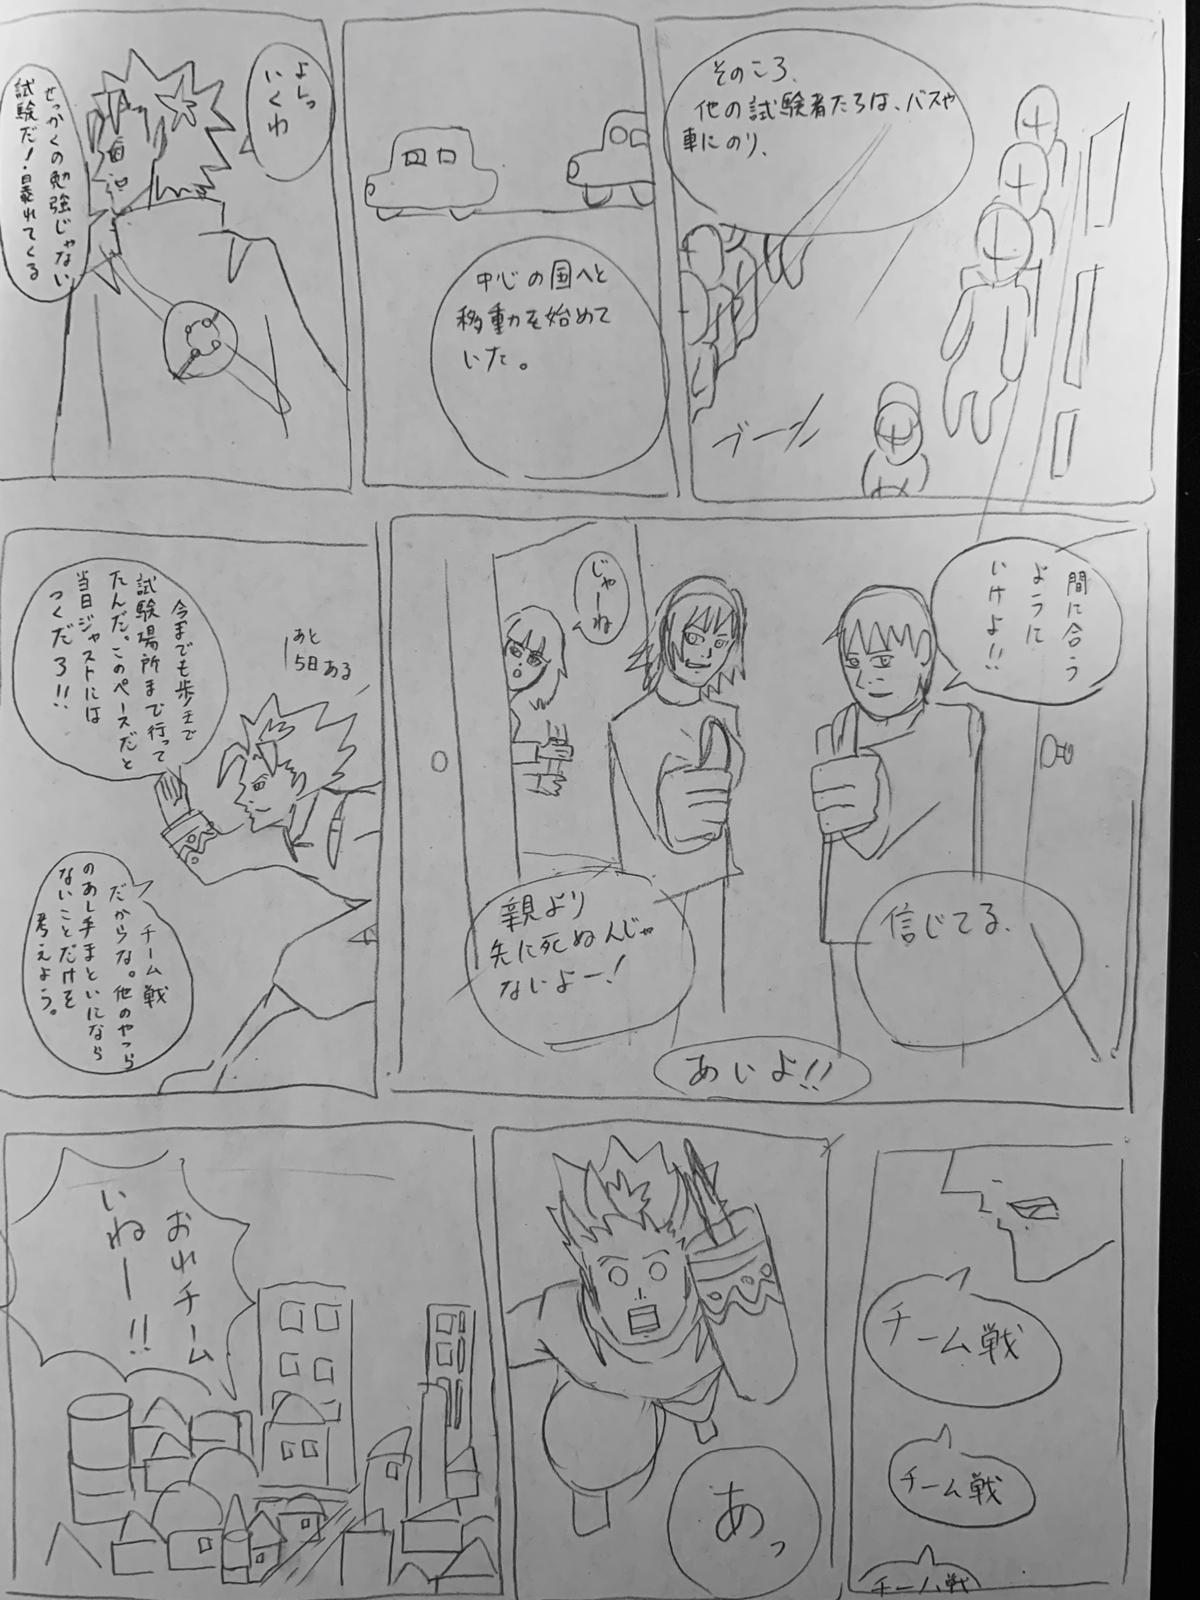 そのころ、
他の試験者たちは、バスや
車にのり、
ブーン
中心の国へと
移動を始めて
いた。
よしっ
いくわ
せっかくの勉強じゃない
試験だ！暴れてくる
間に合う
ように
いけよ!!
じゃーね
信じてる、
親より
先に死ぬんじゃ
ないよー！
あいよ!!
あと
5日ある
今までも歩きで
試験場所まで行って
たんだ。このペースだと
当日ジャストには
つくだろ!!
チーム戦
だからな。他のやつら
のあし手まといになら
ないことだけを
考えよう。
チーム戦
チーム戦
チーム戦
あっ
おれチーム
いねー!!